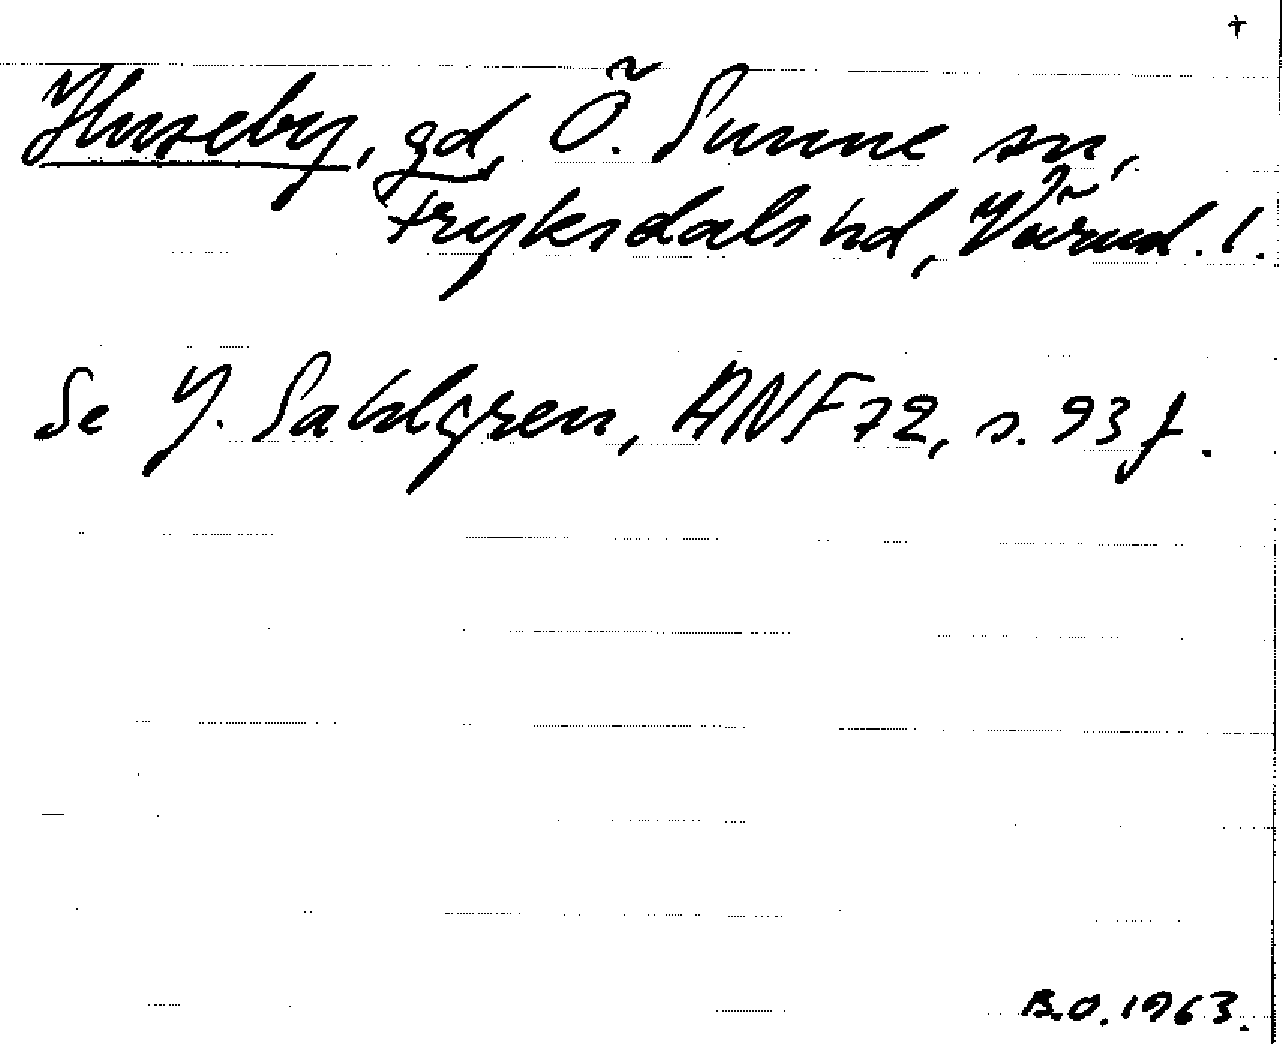 +
Huseby, gd, Ö. Sunne sn,
Fryksdals hd, Värml. l.
Se J. Sahlgren, ANF 72, s. 93 f.
B.O. 1963.